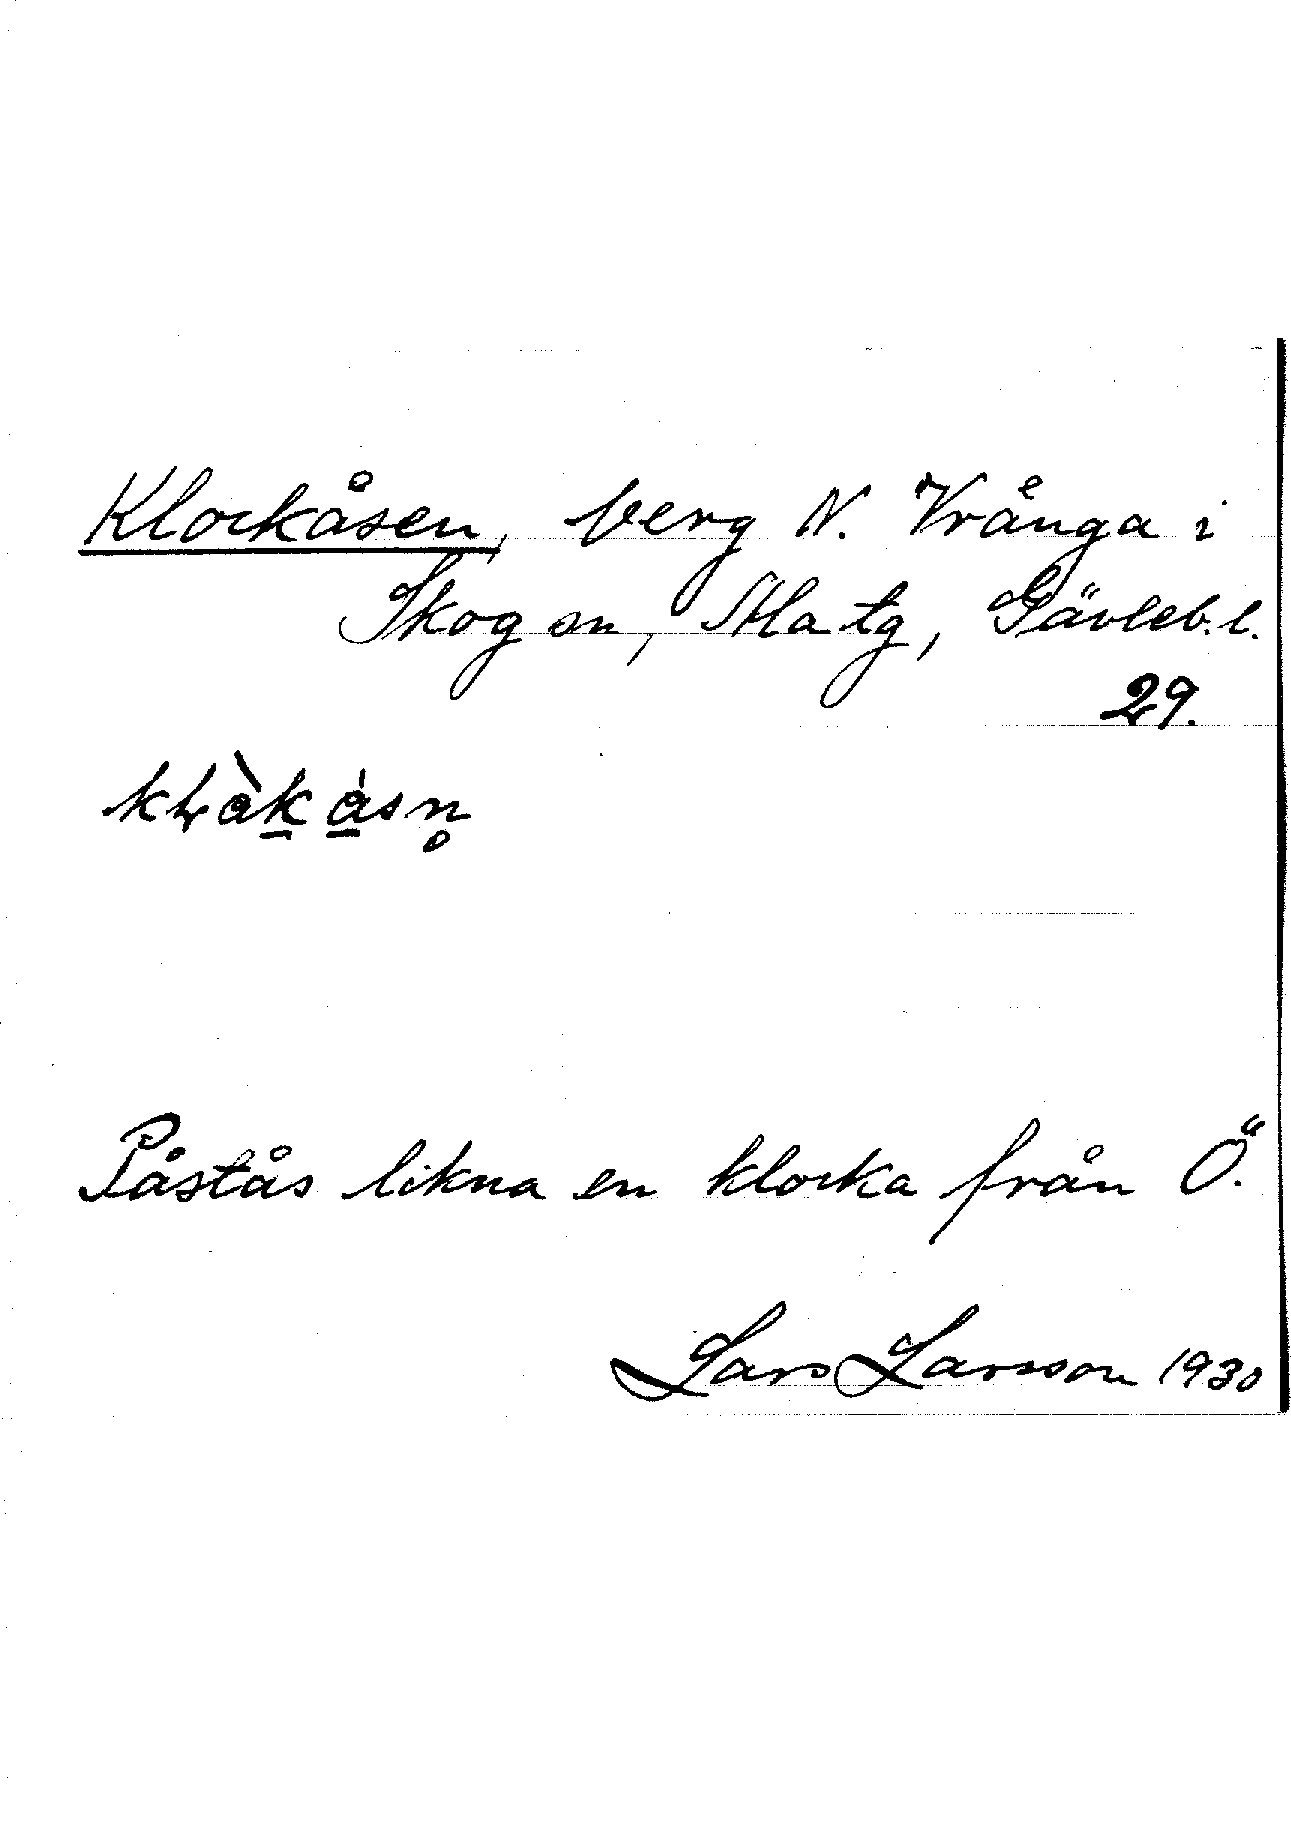 Klockåsen, berg N. Vrånga i
Skog sn, Ala tg, Gävleb. l.
29.
Påstås likna en klocka från Ö.
Lars Larsson 1930